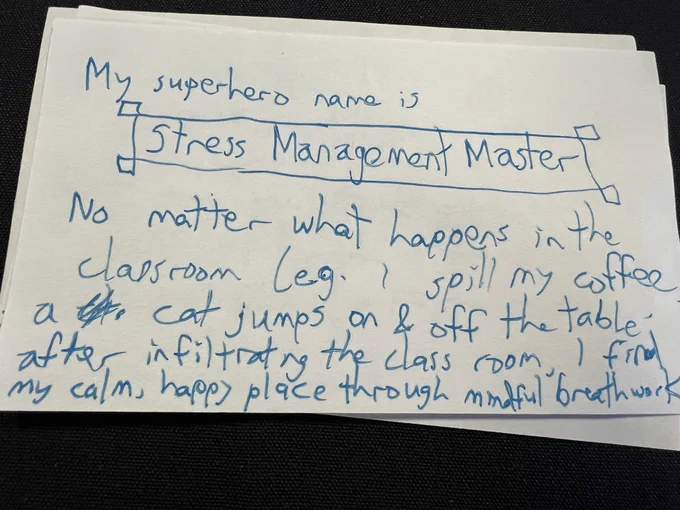 My superhero name is
Stress Management Master
No matter what happens in the
classroom (eg. I spill my coffee,
a cat jumps on & off the table
after infiltrating the class room, I find
my calm, happy place through mindful breathwork